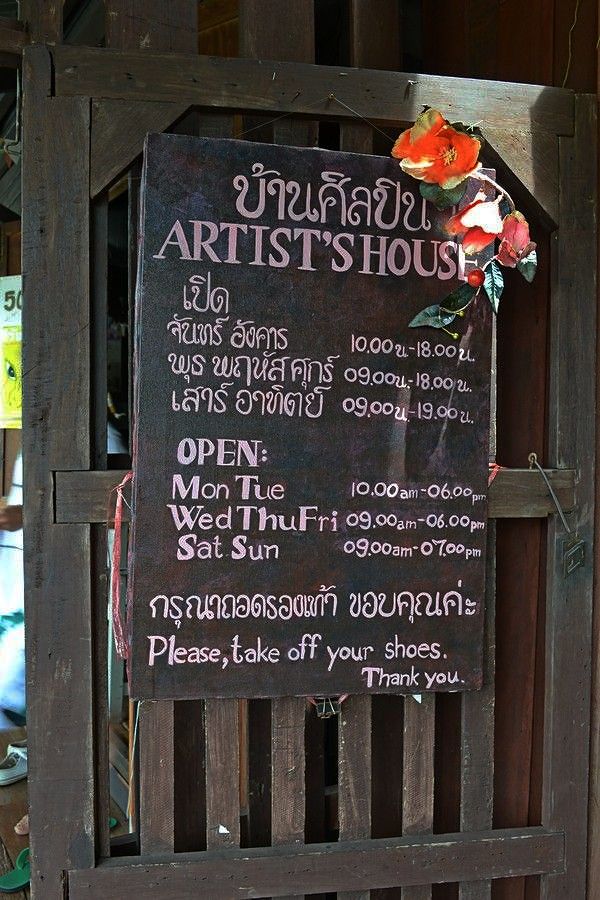 บ้านศิลปิน
ARTIST'S HOUSE
เปิด
จันทร์ อังคาร 10.00น.-18.00น.
พุธ พฤหัส ศุกร์ 09.00น.-18.00น.
เสาร์ อาทิตย์ 09.00น.-19.00น.
OPEN:
Mon Tue 10.00am-06.00pm
Wed Thu Fri 09.00am-06.00pm
Sat Sun 09.00am-07.00pm
กรุณาถอดรองเท้า ขอบคุณค่ะ
Please, take off your shoes.
Thank you.